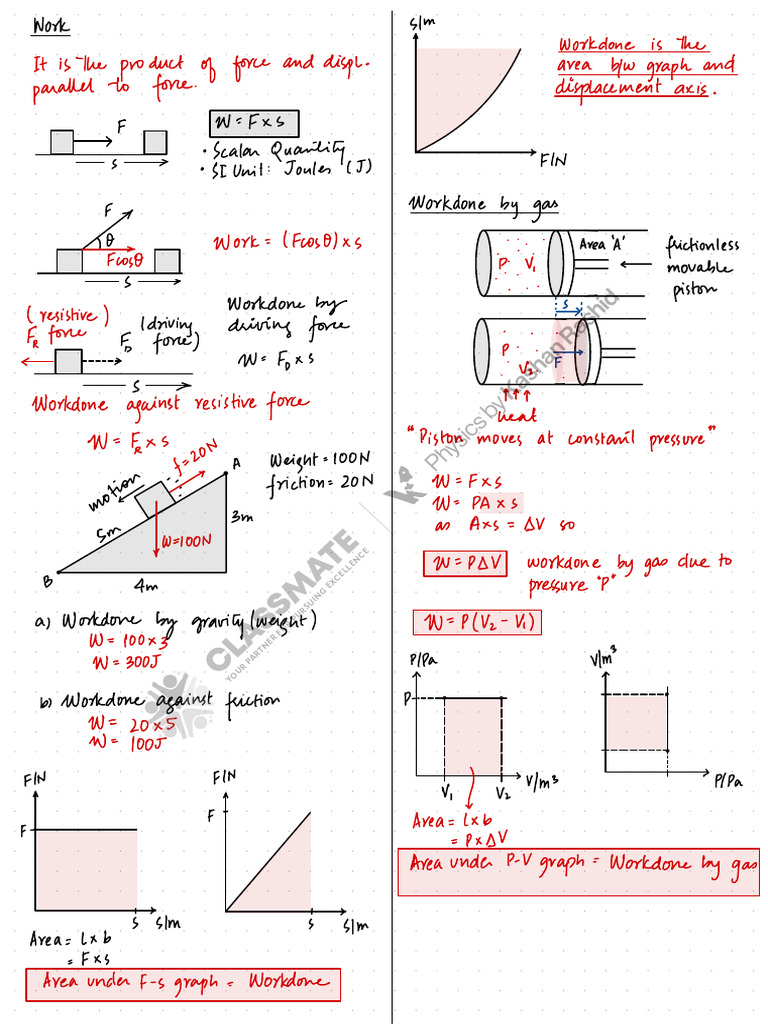 Work
It is the product of force and displ.
parallel to force.
F
s
W = F x s
• Scalar Quantity
• SI Unit: Joules (J)
F
θ
Fcosθ
s
Work = (Fcosθ) x s
(resistive)
F_R force
F_D (driving force)
s
Workdone by
driving force
W = F_D x s
Workdone against resistive force
W = F_R x s
motion
f = 20N
A
5m
3m
W=100N
B
4m
Weight = 100N
friction = 20N
a) Workdone by gravity (weight)
W = 100 x 3
W = 300J
b) Workdone against friction
W = 20 x 5
W = 100J
F/N
F
s
s/m
F/N
F
s
s/m
Area = l x b
= F x s
Area under F-s graph = Workdone
s/m
F/N
Workdone is the
area b/w graph and
displacement axis.
Workdone by gas
P V₁
Area 'A'
frictionless
movable
piston
s
P
V₂
F
heat
"Piston moves at constant pressure"
W = F x s
W = PA x s
as A x s = ΔV so
W = PΔV
workdone by gas due to
pressure 'P'
W = P(V₂ - V₁)
P/Pa
P
V₁
V₂
V/m³
V/m³
P/Pa
Area = l x b
= P x ΔV
Area under P-V graph = Workdone by gas
CLASSMATE
YOUR PARTNER IN PURSUING EXCELLENCE
Physics by Kashan Rashid